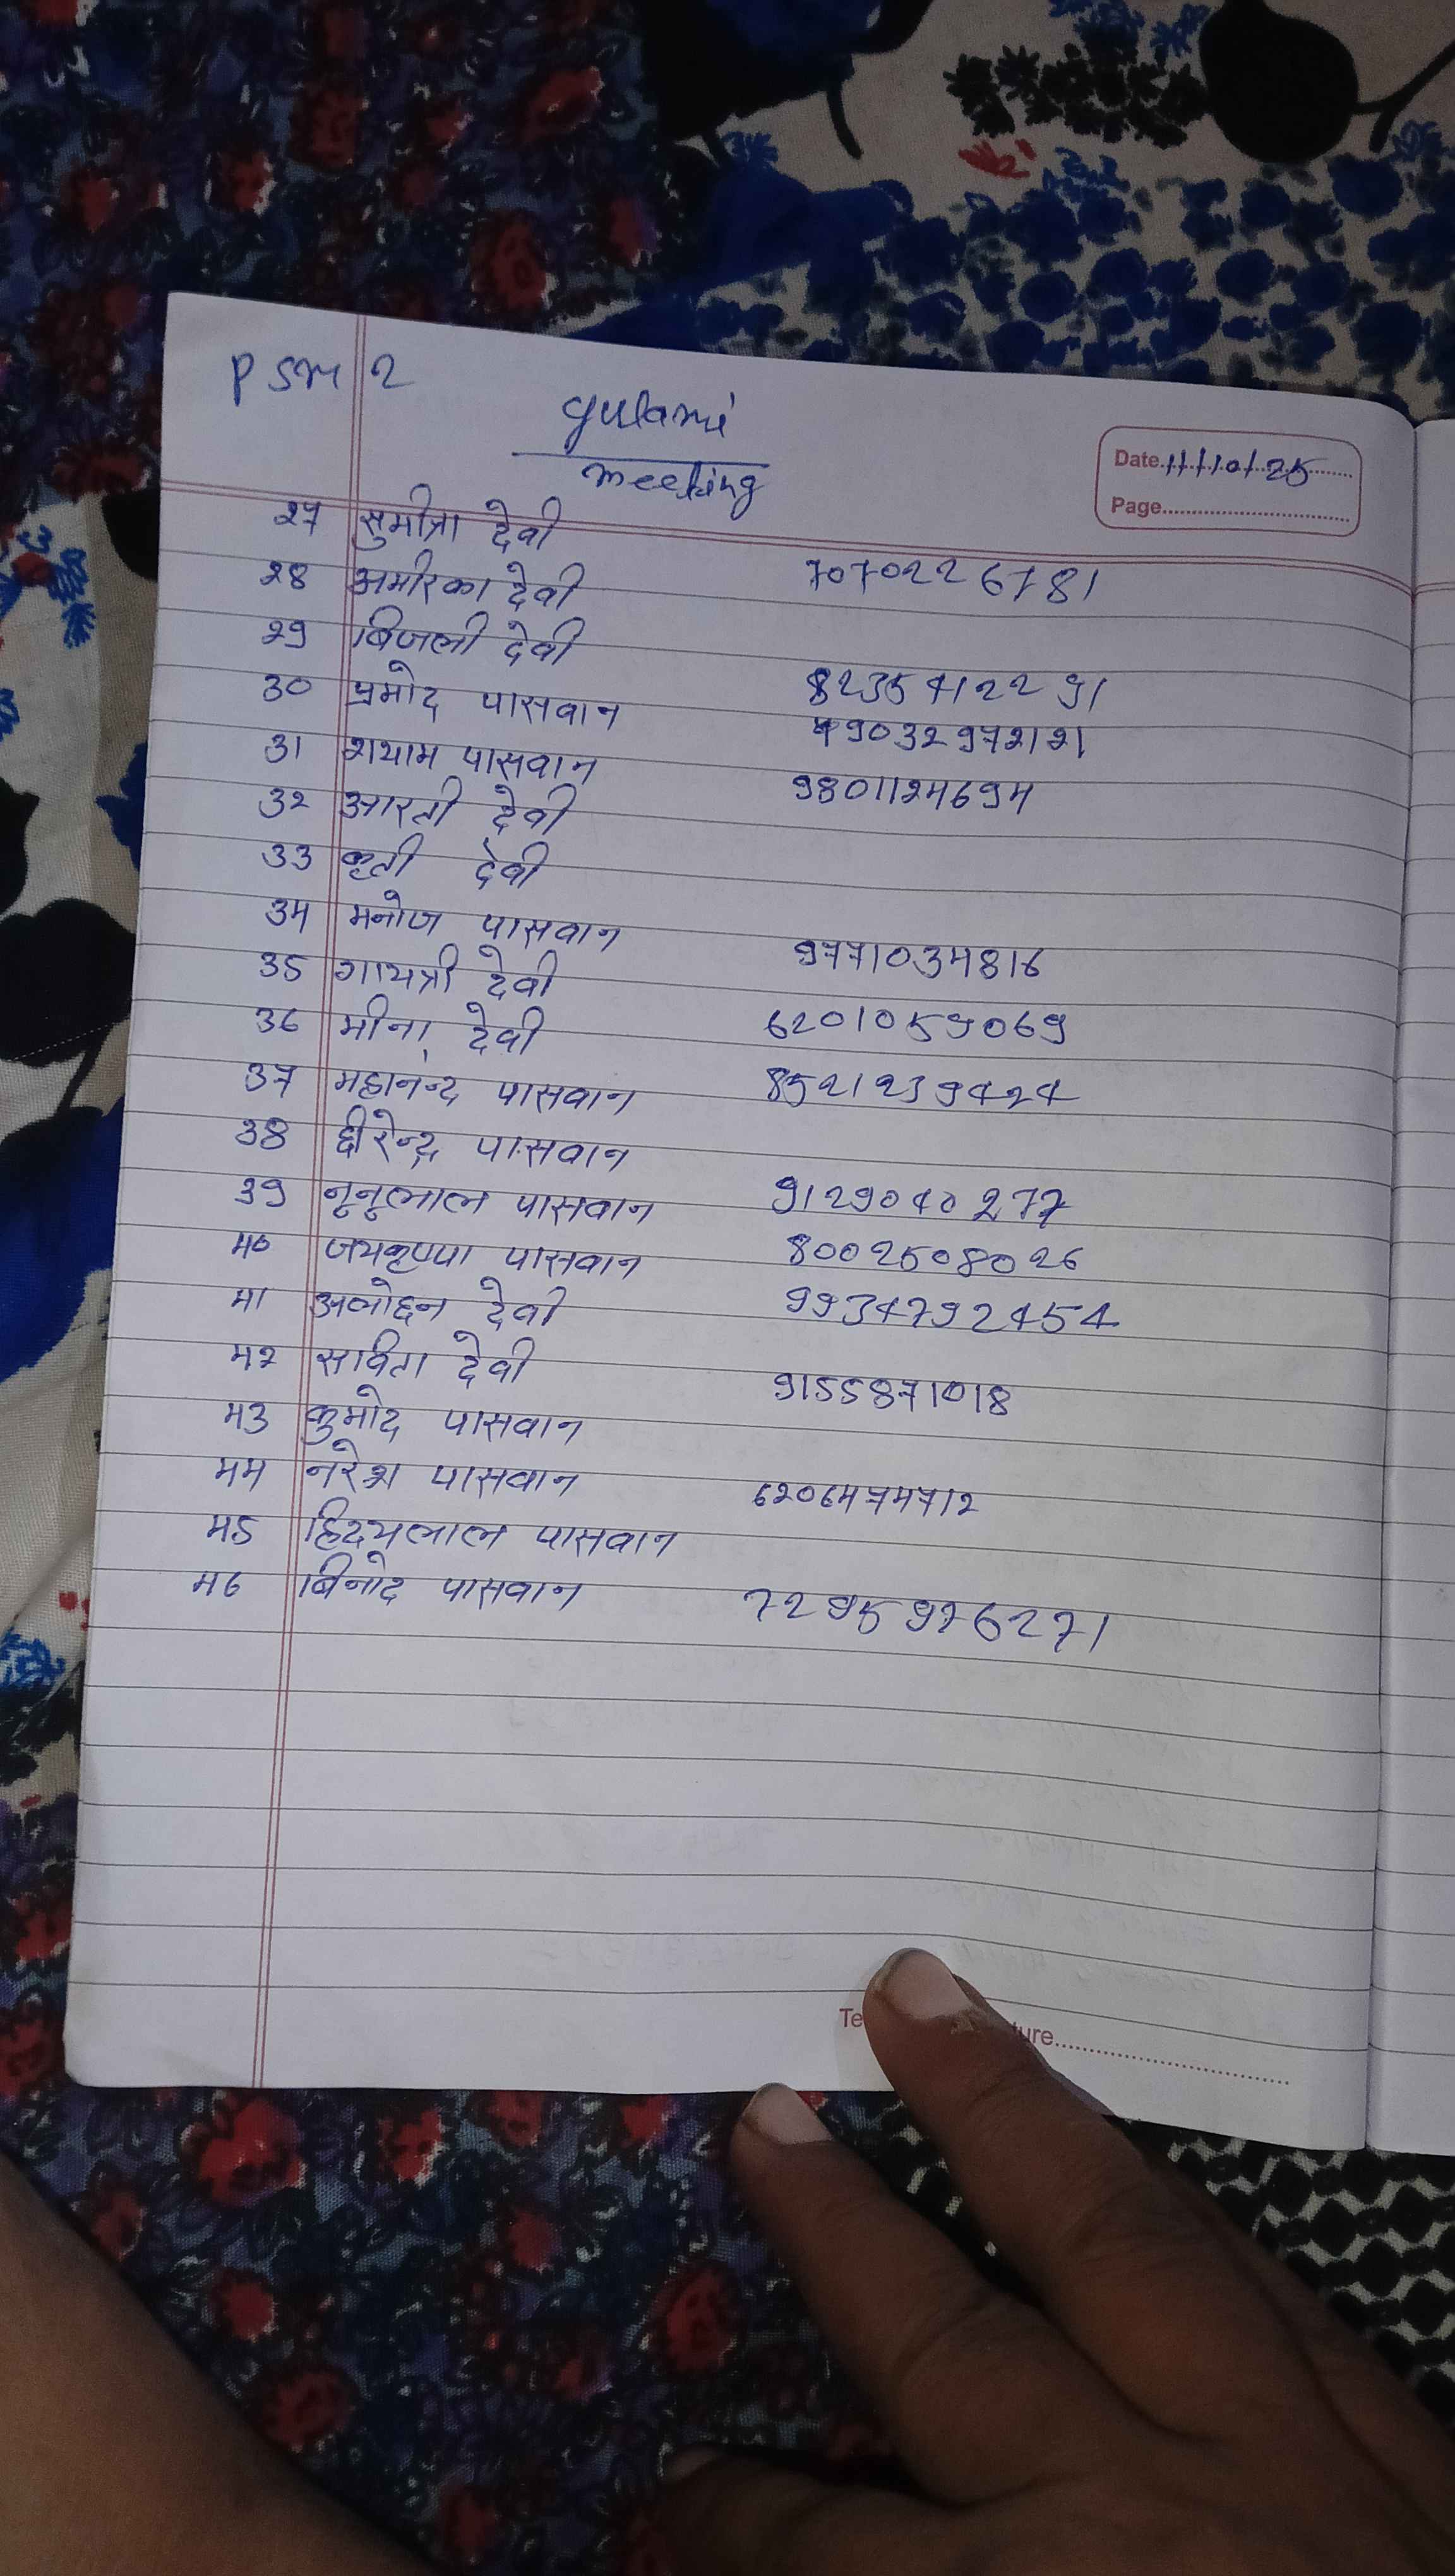 PSM 2
gulami
meeting
Date 11/10/25
Page
27 सुमीत्रा देवी
28 अमीरका देवी 7070226781
29 बिजली देवी
30 प्रमोद पासवान 8235412291
31 शयाम पासवान 9903297221
32 आरती देवी 9801124694
33 कृती देवी
34 मनोज पासवान
35 गायत्री देवी 9771034816
36 मीना देवी 6201059069
37 महानन्द पासवान 8521239424
38 धीरेन्द्र पासवान
39 नूनूलाल पासवान 9129040277
40 जयकृष्णा पासवान 8002508026
41 देवी 9934792454
42 सविता देवी
43 कुमोद पासवान 9155871018
44 नरेश पासवान
45 हिदयलाल पासवान 6206474712
46 बिनोद पासवान
7295976271